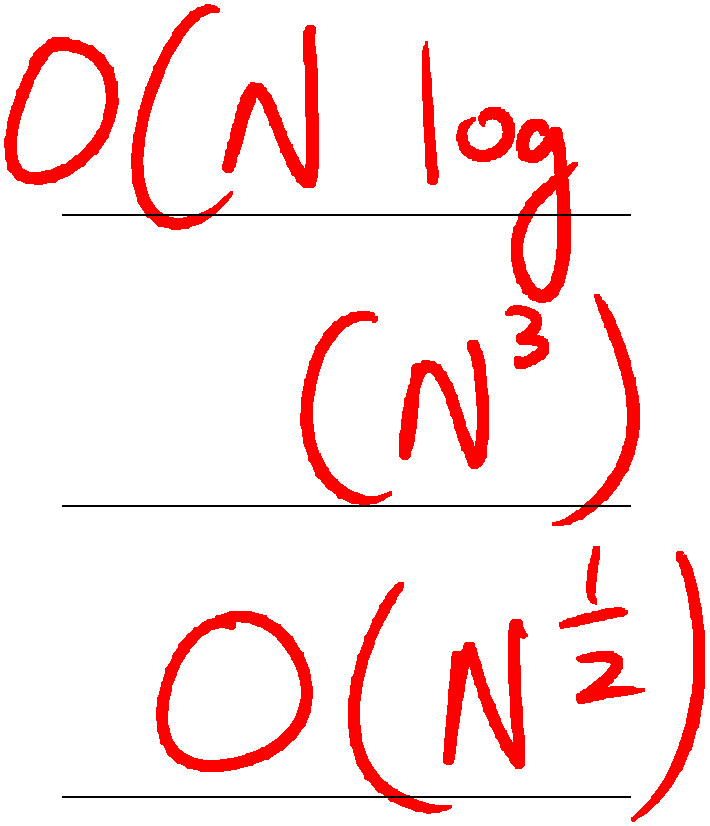 O(N log
(N³)
O(N^½)